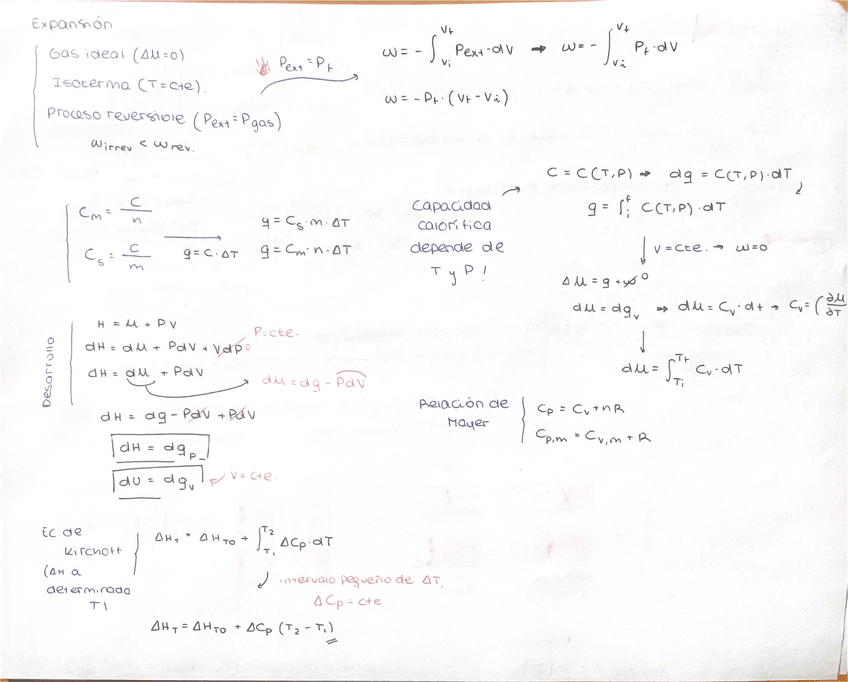 Expansión
Gas ideal (ΔU=0)
Isoterma (T=cte).
Proceso reversible (Pext=Pgas)
Wirrev < Wrev.
Pext=Pf
W = - ∫Vi^Vf Pext·dV → W = - ∫Vi^Vf Pf·dV
W = -Pf·(Vf-Vi)
Cm = C/n
Cs = C/m
q = C·ΔT
q = Cs·m·ΔT
q = Cm·n·ΔT
Capacidad
calorífica
depende de
T y P!
C = C(T,P) → dq = C(T,P)·dT
q = ∫i^f C(T,P)·dT
V=cte. → W=0
ΔU = q + W 0
dU = dqv → dU = Cv·dt → Cv = (∂U/∂T
dU = ∫Ti^Tf Cv·dT
Desarrollo
H = U + PV
dH = dU + PdV + VdP 0
P=cte.
dH = dU + PdV
dU = dq - PdV
dH = dq - PdV + PdV
dH = dqp
dU = dqv
V=cte.
Relación de
Mayer
Cp = Cv + nR
Cp,m = Cv,m + R
Ec. de
Kirchoff
(ΔH a
determinada
T)
ΔHT = ΔHT0 + ∫T1^T2 ΔCp·dT
intervalo pequeño de ΔT,
ΔCp = cte
ΔHT = ΔHT0 + ΔCp (T2 - T1)